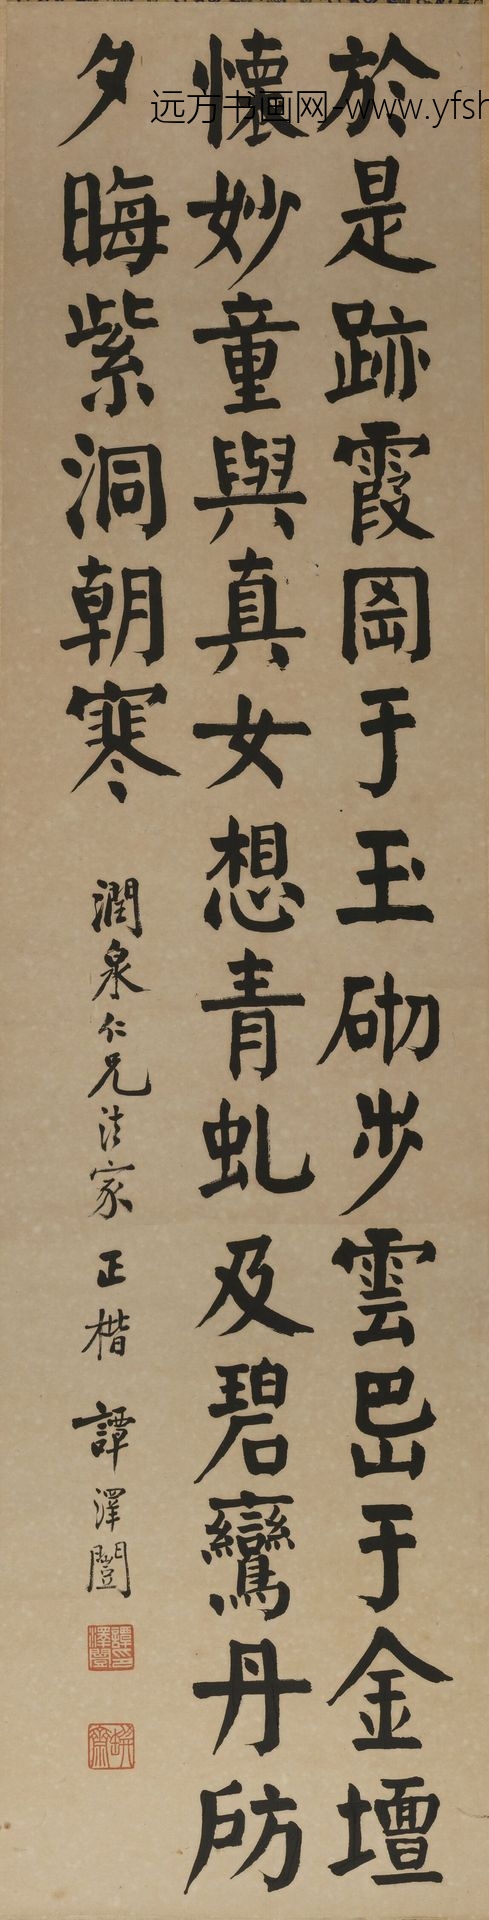 於是跡霞岡于玉砌步雲岊于金壇
懷妙童與真女想青虬及碧鸞丹房
夕晦紫洞朝寒
潤泉仁兄法家正楷 譚澤闓
譚澤闓印
瓶齋
远方书画网-www.yfsh